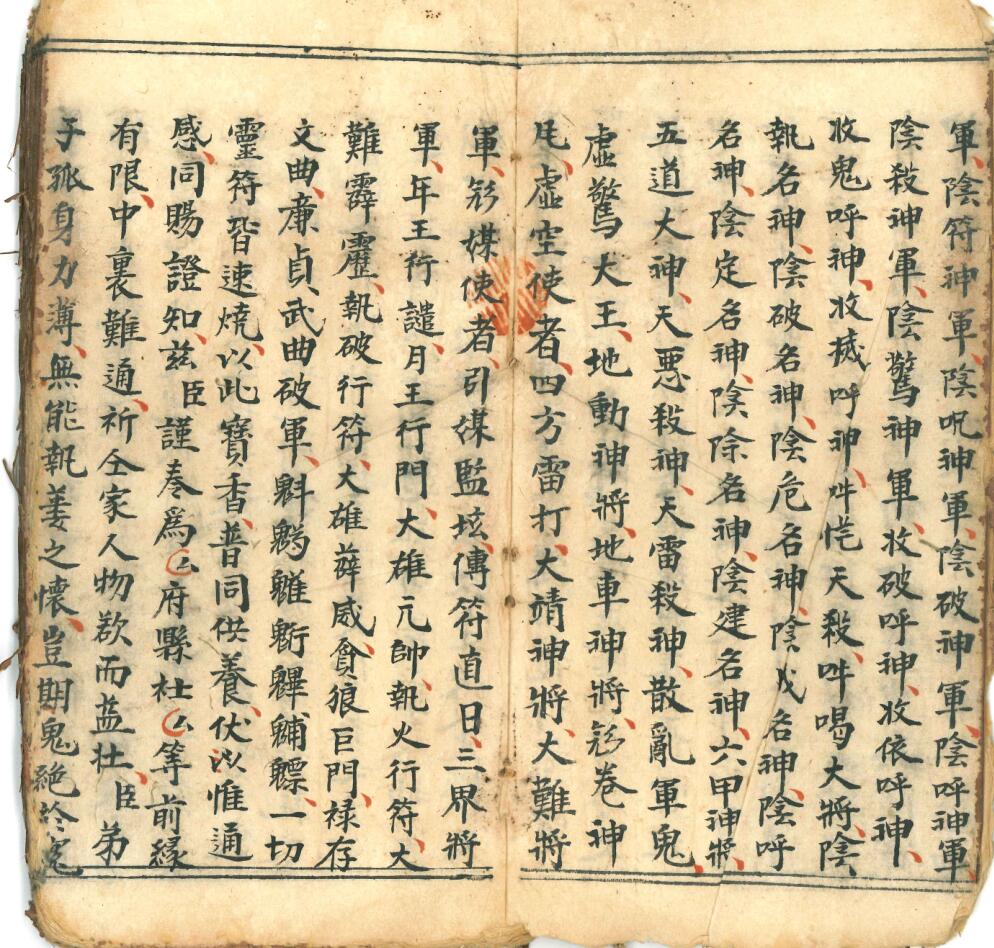 軍、陰符神軍、陰呪神軍、陰破神軍、陰呼神軍、
陰殺神軍、陰驚神軍、收破呼神、收依呼神、
收鬼呼神、收械呼神、吽慌天殺、吽喝大將、陰
執名神、陰破名神、陰危名神、陰成名神、陰呼
名神、陰定名神、陰除名神、陰建名神、六甲神將、
五道大神、天悪殺神、天雷殺神、散亂軍鬼、
虛驚大王、地動神將、地車神將、卷神
虛空使者、四方雷打、大靖神將、大難將
軍、媒使者、引媒監坛、傳符直日、三界將
軍、年王行譴、月王行門、大雄元帥、執火行符、大
難霹靂、執破行符、大雄薛威、貪狼巨門、祿存
文曲、廉貞武曲破軍、魁䰢魓䰢魒、一切
靈符、皆速燒、以此寶香、普同供養、伏以惟通
感、同賜證知、茲臣謹奏爲厶府縣社厶等前緣
有限、中裏難通、祈仝家人物欲而益壮、臣弟
子孤身力薄、無能執姜之懷、豈期鬼絶於冤